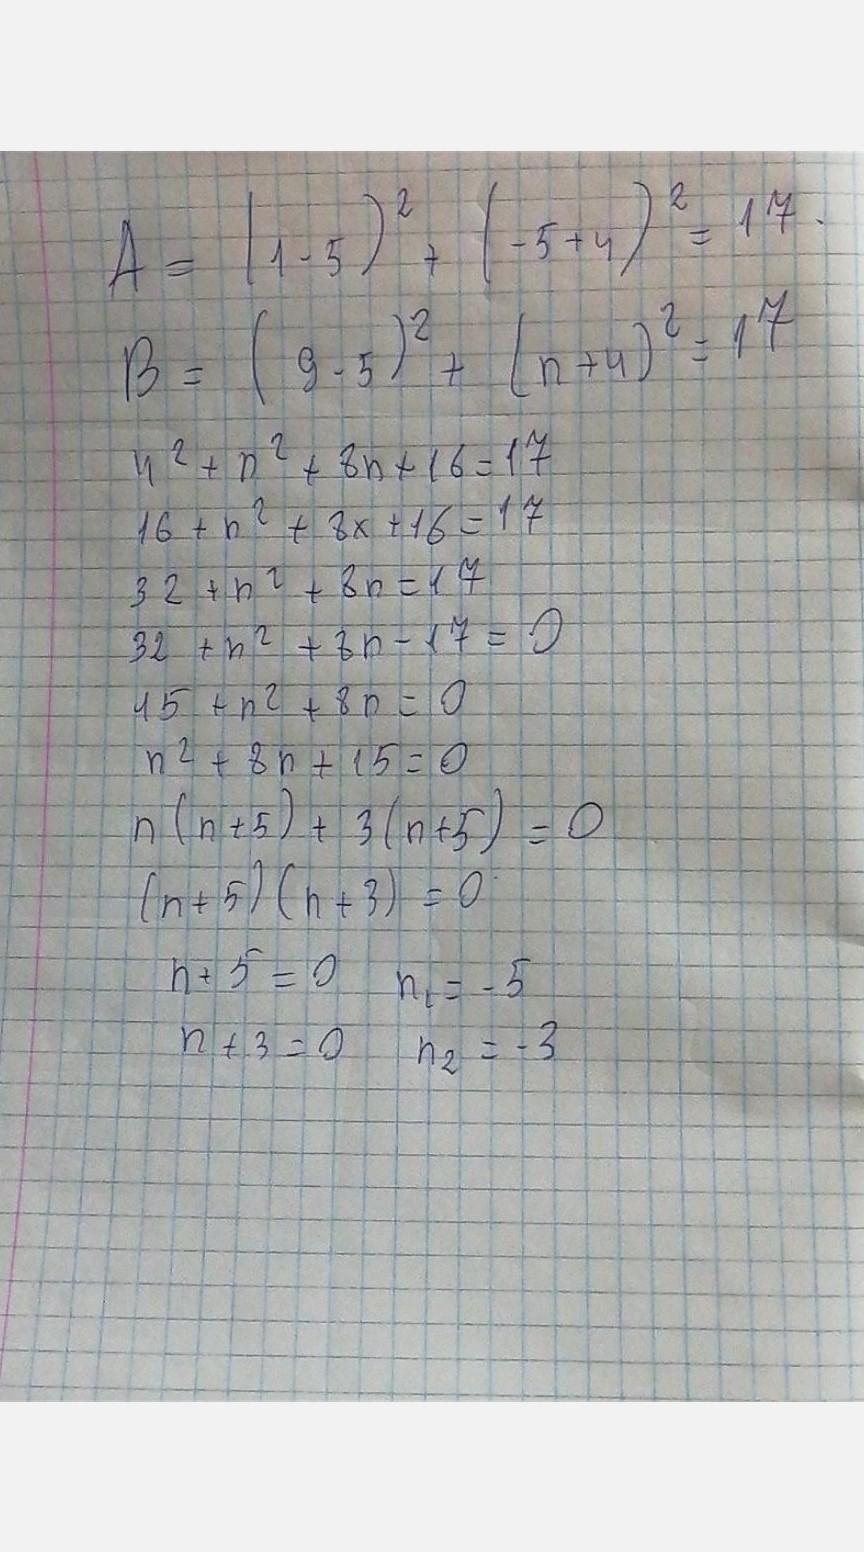 A = (1-5)² + (-5+4)² = 17.
B = (9-5)² + (n+4)² = 17
4² + n² + 8n + 16 = 17
16 + n² + 8x + 16 = 17
32 + n² + 8n = 17
32 + n² + 8n - 17 = 0
15 + n² + 8n = 0
n² + 8n + 15 = 0
n(n+5) + 3(n+5) = 0
(n+5)(n+3) = 0
n+5 = 0 n₁ = -5
n+3 = 0 n₂ = -3